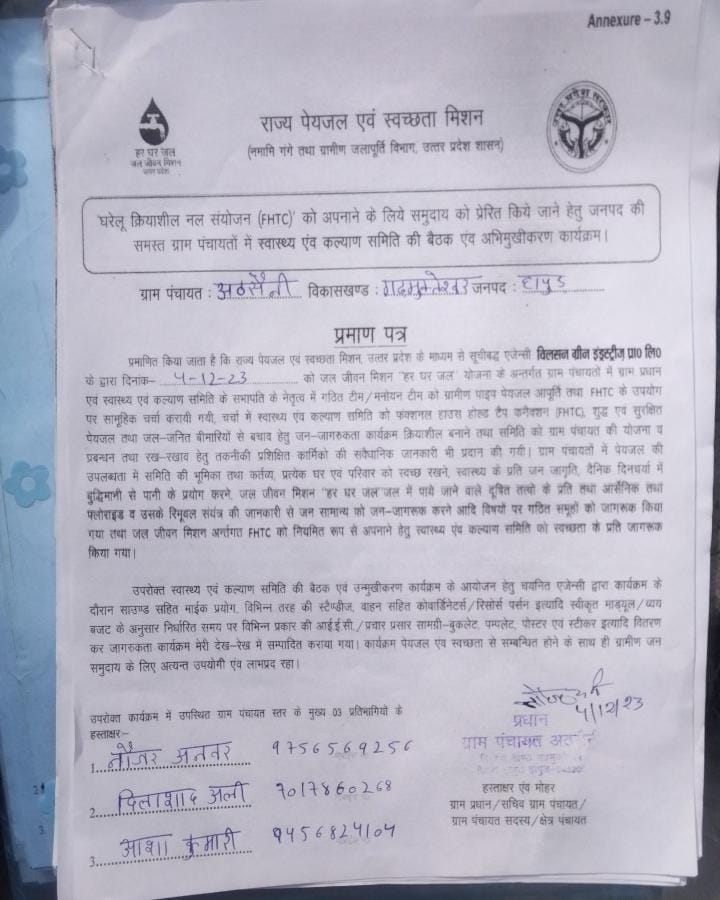 Annexure – 3.9
राज्य पेयजल एवं स्वच्छता मिशन
(नमामि गंगे तथा ग्रामीण जलापूर्ति विभाग, उत्तर प्रदेश शासन)
हर घर जल
जल जीवन मिशन
उत्तर प्रदेश
उत्तर प्रदेश सरकार
'घरेलू क्रियाशील नल संयोजन (FHTC)' को अपनाने के लिये समुदाय को प्रेरित किये जाने हेतु जनपद की
समस्त ग्राम पंचायतों में स्वास्थ्य एंव कल्याण समिति की बैठक एंव अभिमुखीकरण कार्यक्रम।
ग्राम पंचायत : अठसैनी विकासखण्ड : गढमुक्तेश्वर जनपद : हापुड
प्रमाण पत्र
प्रमाणित किया जाता है कि राज्य पेयजल एवं स्वच्छता मिशन, उत्तर प्रदेश के माध्यम से सूचीबद्व एजेन्सी विलसन ग्रीन इंडस्ट्रीज प्रा० लि०
के द्वारा दिनांक– 4-12-23 को जल जीवन मिशन "हर घर जल" योजना के अन्तर्गत ग्राम पंचायतों में ग्राम प्रधान
एंव स्वास्थ्य एंव कल्याण समिति के सभापति के नेतृत्व में गठित टीम/मनोयन टीम को ग्रामीण पाइप पेयजल आपूर्ति तथा FHTC के उपयोग
पर सामूहिक चर्चा करायी गयी, चर्चा में स्वास्थ्य एंव कल्याण समिति को फंक्शनल हाउस होल्ड टैप कनेक्शन (FHTC), शुद्व एवं सुरक्षित
पेयजल तथा जल-जनित बीमारियों से बचाव हेतु जन-जागरुकता कार्यक्रम क्रियाशील बनाने तथा समिति को ग्राम पंचायत की योजना व
प्रबन्धन तथा रख-रखाव हेतु तकनीकी प्रशिक्षित कार्मिको की सवैधानिक जानकारी भी प्रदान की गयी। ग्राम पंचायतों में पेयजल की
उपलब्धता में समिति की भूमिका तथा कर्तव्य, प्रत्येक घर एवं परिवार को स्वच्छ रखने, स्वास्थ्य के प्रति जन जागृति, दैनिक दिनचर्या में
बुद्धिमानी से पानी के प्रयोग करने, जल जीवन मिशन "हर घर जल" जल में पाये जाने वाले दूषित तत्वो के प्रति तथा आर्सेनिक तथा
फ्लोराइड व उसके रिमूवल संयंत्र की जानकारी से जन सामान्य को जन-जागरूक करने आदि विषयों पर गठित समूहों को जागरूक किया
गया तथा जल जीवन मिशन अर्न्तगत FHTC को नियमित रूप से अपनाने हेतु स्वास्थ्य एंव कल्याण समिति को स्वच्छता के प्रति जागरूक
किया गया।
उपरोक्त स्वास्थ्य एंव कल्याण समिति की बैठक एवं उन्मुखीकरण कार्यक्रम के आयोजन हेतु चयनित एजेन्सी द्वारा कार्यक्रम के
दौरान साउण्ड सहित माईक प्रयोग, विभिन्न तरह की स्टैण्डीज, वाहन सहित कोवार्डिनेटर्स/रिसोर्स पर्सन इत्यादि स्वीकृत माड्यूल/व्यय
बजट के अनुसार निर्धारित समय पर विभिन्न प्रकार की आई.ई.सी./प्रचार प्रसार सामग्री-बुकलेट, पम्पलेट, पोस्टर एवं स्टीकर इत्यादि वितरण
कर जागरुकता कार्यक्रम मेरी देख-रेख में सम्पादित कराया गया। कार्यक्रम पेयजल एंव स्वच्छता से सम्बन्धित होने के साथ ही ग्रामीण जन
समुदाय के लिए अत्यन्त उपयोगी एंव लाभप्रद रहा।
उपरोक्त कार्यक्रम में उपस्थित ग्राम पंचायत स्तर के मुख्य 03 प्रतिभागियों के
हस्ताक्षरः–
1. नौजर अनवर 9756569256
2. दिलाशाद अली 7017860268
3. आशा कुमारी 9456824104
4/12/23
प्रधान
ग्राम पंचायत
हस्ताक्षर एंव मोहर
ग्राम प्रधान/सचिव ग्राम पंचायत/
ग्राम पंचायत सदस्य/क्षेत्र पंचायत